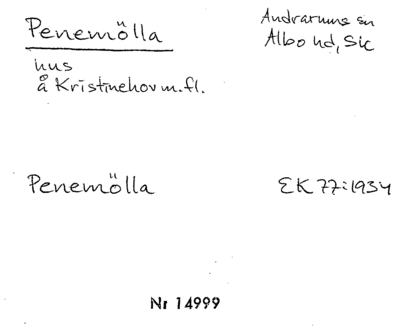 Penemölla
Andrarums sn
Albo hd, Sk
hus
å Kristinehov m.fl.
Penemölla
EK 77:1934
Nr 14999